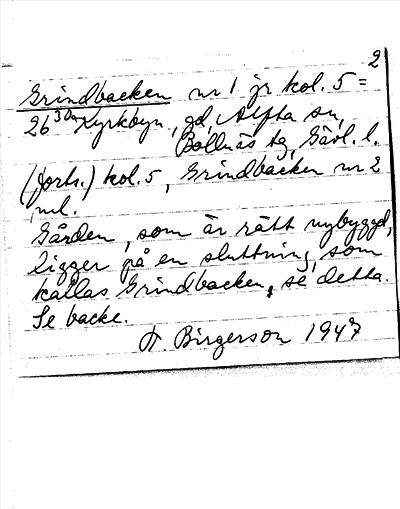 2
Grindbacken nr 1 jr kol. 5 =
26³⁰ᵐ Kyrkbyn, gd, Alfta sn,
Bollnäs tg, Gävl. l.
(forts.) kol. 5, Grindbacken nr 2
ml.
Gården, som är rätt nybyggd,
ligger på en sluttning, som
kallas Grindbacken, se detta.
Se backe.
F. Birgerson 1947